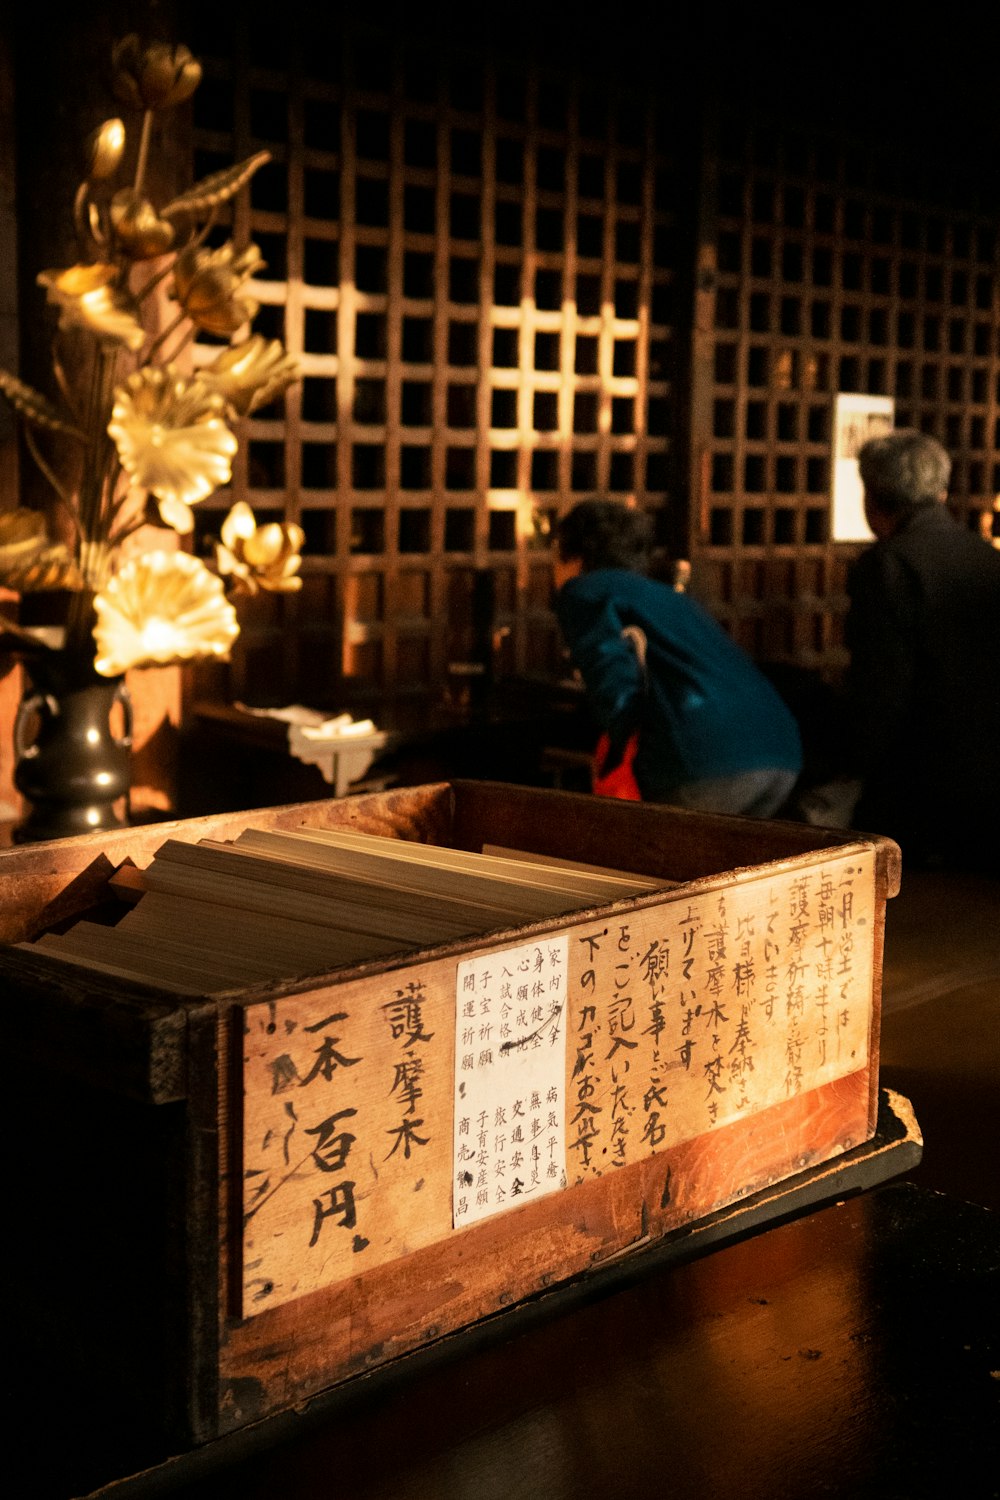 二月堂では
毎朝十時半より
護摩祈祷を厳修
しています
皆様よりご奉納され
る護摩木を焚き
上げています
願い事とご氏名
をご記入いただき
下のカゴにお入れ下さい
家内安全
身体健全
心願成就
入試合格
子宝祈願
開運祈願
病気平癒
無事息災
交通安全
旅行安全
子育安産願
商売繁昌
護摩木
一本百円